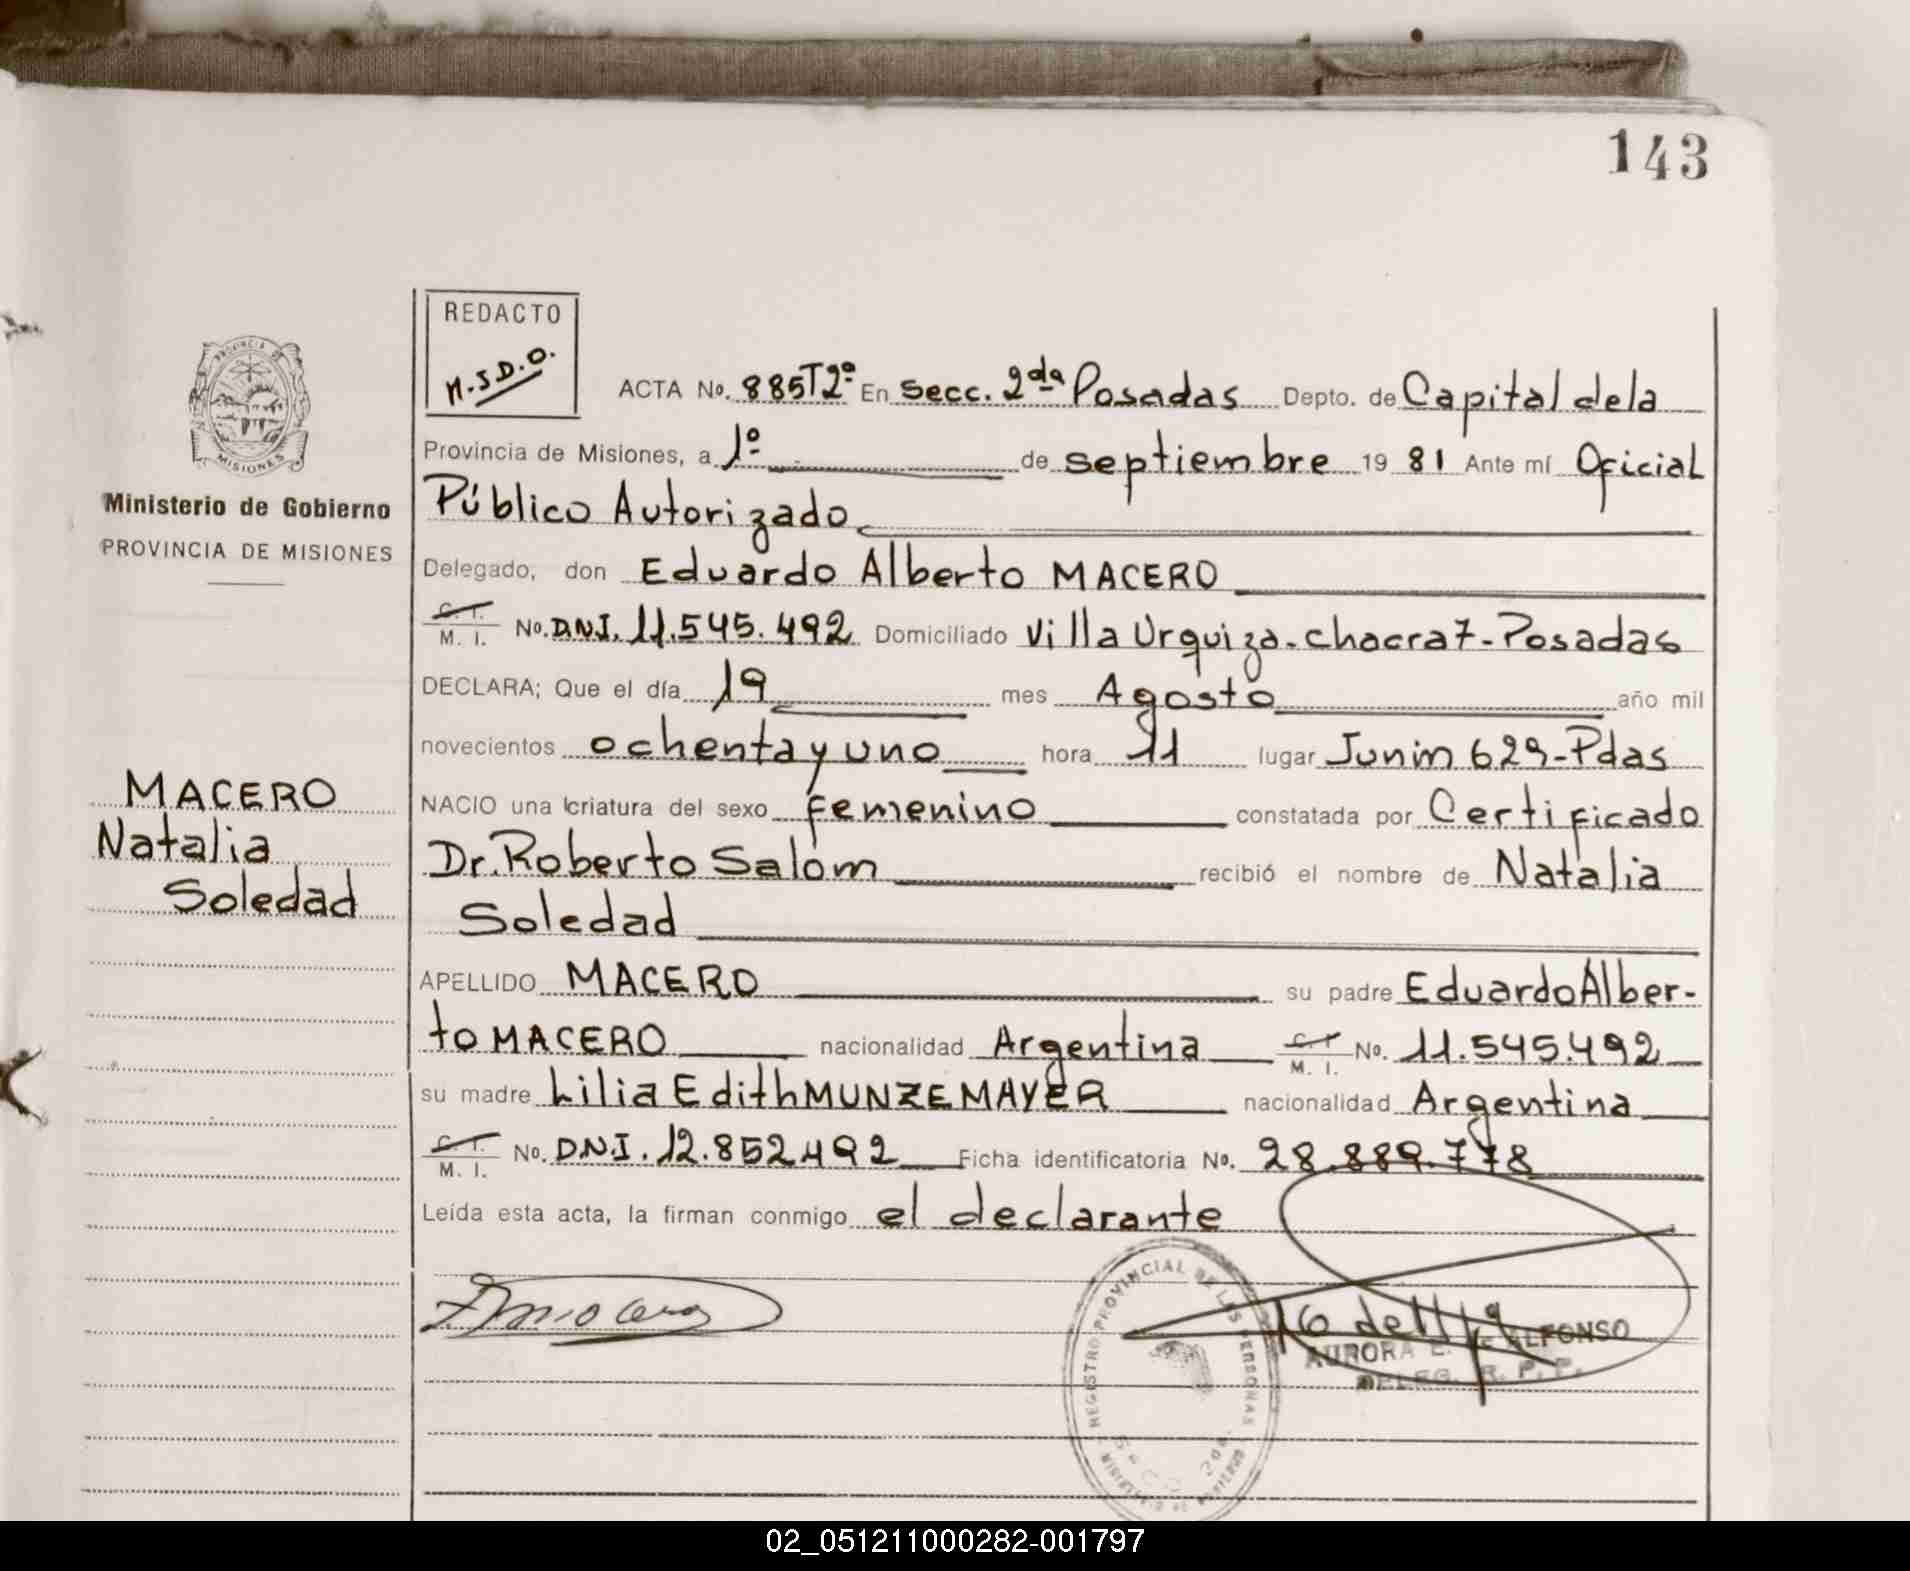 143
REDACTO
M.S.D.O.
PROVINCIA DE
MISIONES
Ministerio de Gobierno
PROVINCIA DE MISIONES
MACERO
Natalia
Soledad
ACTA No. 885T2º En Secc. 2da Posadas Depto. de Capital de la
Provincia de Misiones, a 1º de septiembre 19 81 Ante mí Oficial
Público Autorizado
Delegado, don Eduardo Alberto MACERO
C. I.
M. I. No. D.N.I. 11.545.492 Domiciliado Villa Urquiza-chacra 7-Posadas
DECLARA; Que el día 19 mes Agosto año mil
novecientos ochenta y uno hora 11 lugar Junin 629-Pdas
NACIO una criatura del sexo femenino constatada por Certificado
Dr. Roberto Salom recibió el nombre de Natalia
Soledad
APELLIDO MACERO su padre Eduardo Alber-
to MACERO nacionalidad Argentina C. I. M. I. No. 11.545.492
su madre Lilia Edith MUNZEMAYER nacionalidad Argentina
C. I.
M. I. No. D.N.I. 12.852.492 Ficha identificatoria No. 28.889.778
Leída esta acta, la firman conmigo el declarante
REGISTRO PROVINCIAL DE LAS PERSONAS
AURORA E. DE ALFONSO
DELEG. R. P. P.
02_051211000282-001797